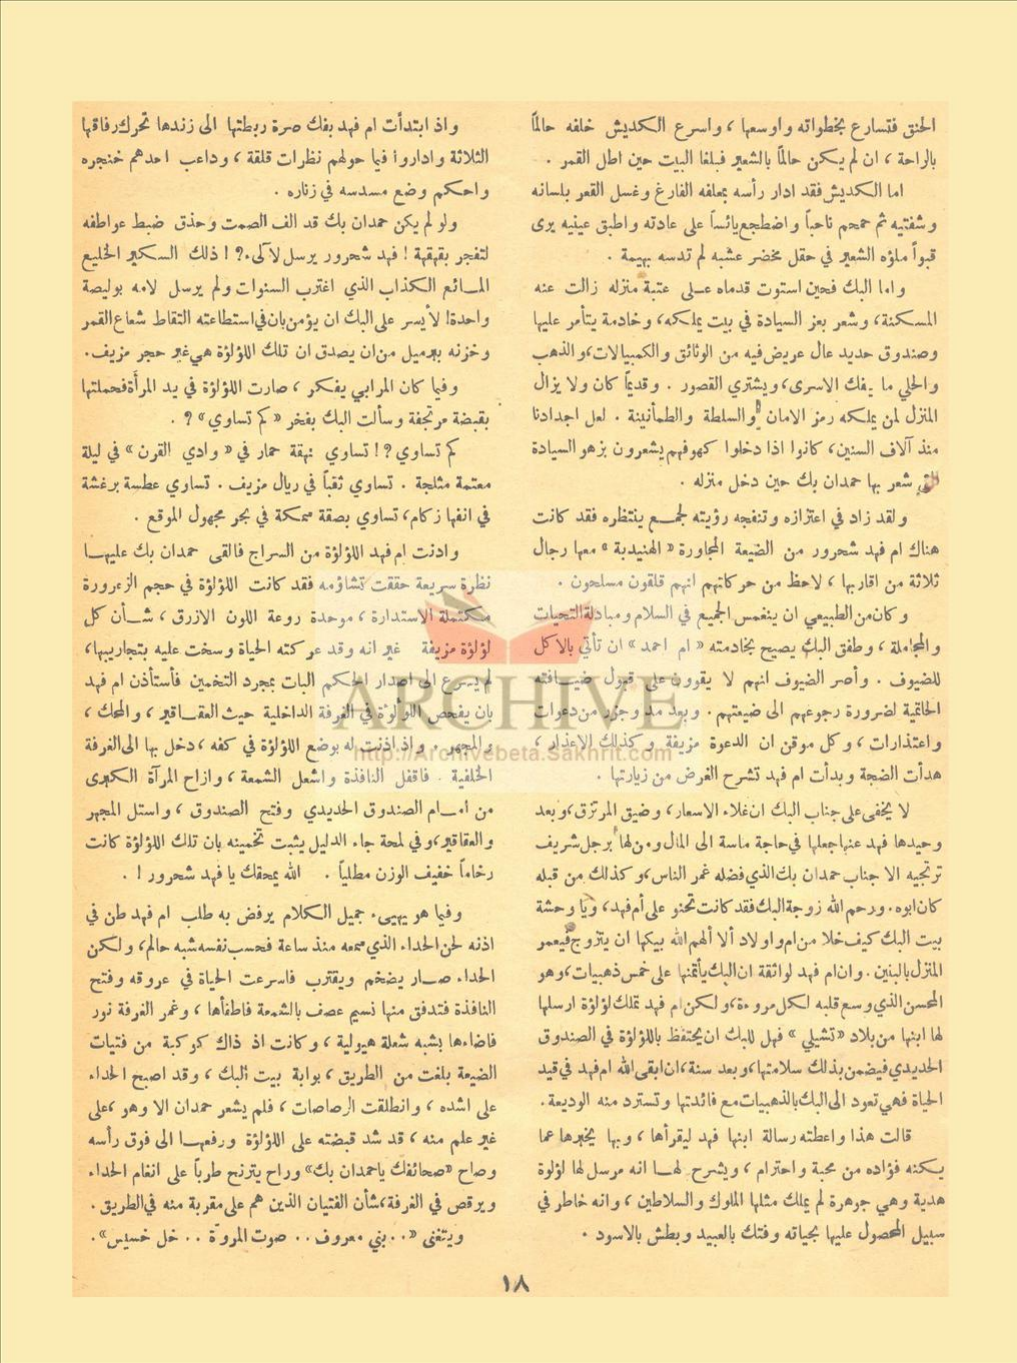 الحنق فتسارع بخطواته واوسعها ، واسرع الكديش خلفه حالماً
بالراحة ، ان لم يكن حالماً بالشعير فبلغا البيت حين اطل القمر .
اما الكديش فقد ادار رأسه بمعلفه الفارغ وغسل القعر بلسانه
وشفتيه ثم حمحم ناحباً واضطجع يائساً على عادته واطبق عينيه يرى
قبواً ملؤه الشعير في حقل مخضر عشبه لم تدسه بهيمة .
واما البك فحين استوت قدماه على عتبة منزله زالت عنه
المسكنة ، وشعر بعز السيادة في بيت يملكه ، وخادمة يتأمر عليها
وصندوق حديد عال عريض فيه من الوثائق والكمبيالات ، والذهب
والحلي ما يفك الاسرى ، ويشتري القصور . وقديماً كان ولا يزال
المنزل لمن يملكه رمز الامان والسلطة والطمأنينة . لعل اجدادنا
منذ آلاف السنين ، كانوا اذا دخلوا كهوفهم يشعرون بزهو السيادة
التي شعر بها حمدان بك حين دخل منزله .
ولقد زاد في اعتزازه وتنفجه رؤيته لجمع ينتظره فقد كانت
هناك ام فهد شحرور من الضيعة المجاورة « الهنيدبة » معها رجال
ثلاثة من اقاربها ، لاحظ من حركاتهم انهم قلقون مسلحون .
وكان من الطبيعي ان ينغمس الجميع في السلام ومبادلة التحيات
والمجاملة ، وطفق البك يصيح بخادمته « ام احمد » ان تأتي بالاكل
للضيوف . وأصر الضيوف انهم لا يقوون على قبول ضيافته
الحاتمية لضرورة رجوعهم الى ضيعتهم . وبعد مد وجزر من دعوات
واعتذارات ، وكل موقن ان الدعوة مزيفة وكذلك الاعذار ،
هدأت الضجة وبدأت ام فهد تشرح الغرض من زيارتها .
لا يخفى على جناب البك ان غلاء الاسعار ، وضيق المرتزق ، وبعد
وحيدها فهد عنها جعلها في حاجة ماسة الى المال ومن لها برجل شريف
ترتجيه الا جناب حمدان بك الذي فضله غمر الناس ، وكذلك من قبله
كان ابوه . ورحم الله زوجة البك فقد كانت تحنو على أم فهد ، ويا وحشة
بيت البك كيف خلا من ام واولاد ألا ألهم الله بيكها ان يتزوج فيعمر
المنزل بالبنين . وان ام فهد لواثقة ان البك يأتمنها على خمس ذهبيات ، وهو
المحسن الذي وسع قلبه لكل مروءة ، ولكن ام فهد تملك لؤلؤة ارسلها
لها ابنها من بلاد « تشيلي » فهل للبك ان يحتفظ باللؤلؤة في الصندوق
الحديدي فيضمن بذلك سلامتها ، وبعد سنة ، ان ابقى الله ام فهد في قيد
الحياة فهي تعود الى البك بالذهبيات مع فائدتها وتسترد منه الوديعة .
قالت هذا واعطته رسالة ابنها فهد ليقرأها ، وبها يخبرها عما
يكنه فؤاده من محبة واحترام ، ويشرح لها انه مرسل لها لؤلوة
هدية وهي جوهرة لم يملك مثلها الملوك والسلاطين ، وانه خاطر في
سبيل المحصول عليها بحياته وفتك بالعبيد وبطش بالاسود .
واذ ابتدأت ام فهد بفك صرة ربطتها الى زندها تحرك رفاقها
الثلاثة واداروا فيما حولهم نظرات قلقة ، وداعب احدهم خنجره
واحكم وضع مسدسه في زناره .
ولو لم يكن حمدان بك قد الف الصمت وحذق ضبط عواطفه
لتفجر بقهقهة ! فهد شحرور يرسل لآلىء ؟ ! ذلك السكير الخليع
المائع الكذاب الذي اغترب السنوات ولم يرسل لامه بوليصة
واحدة ! لأيسر على البك ان يؤمن بان في استطاعته التقاط شعاع القمر
وخزنه ببرميل من ان يصدق ان تلك اللؤلؤة هي غير حجر مزيف .
وفيما كان المرابي يفكر ، صارت اللؤلؤة في يد المرأة فحملتها
بقبضة مرتجفة وسألت البك بفخر « كم تساوي » ? .
كم تساوي ? ! تساوي نهقة حمار في « وادي القرن » في ليلة
معتمة مثلجة . تساوي ثقباً في ريال مزيف . تساوي عطسة برغشة
في انفها زكام ، تساوي بصقة سمكة في بحر مجهول الموقع .
وادنت ام فهد اللؤلؤة من السراج فالقى حمدان بك عليها
نظرة سريعة حققت تشاؤمه فقد كانت اللؤلؤة في حجم الزعرورة
مكتملة الاستدارة ، موحدة روعة اللون الازرق ، شأن كل
لؤلؤة مزيفة غير انه وقد عركته الحياة وسخت عليه بتجاريبها ،
لم يسرع الى اصدار الحكم البات بمجرد التخمين فأستأذن ام فهد
بان يفحص اللؤلؤة في الغرفة الداخلية حيث العقاقير ، والمحك ،
والمجهر . واذ اذنت له بوضع اللؤلؤة في كفه ، دخل بها الى الغرفة
الخلفية . فاقفل النافذة واشعل الشمعة ، وازاح المرآة الكبرى
من امام الصندوق الحديدي وفتح الصندوق ، واستل المجهر
والعقاقير ، وفي لمحة جاء الدليل يثبت تخمينه بان تلك اللؤلؤة كانت
رخاماً خفيف الوزن مطلياً . الله يمحقك يا فهد شحرور ! .
وفيما هو يهيىء جميل الكلام يرفض به طلب ام فهد طن في
اذنه لحن الحداء الذي سمعه منذ ساعة فحسب نفسه شبه حالم ، ولكن
الحداء صار يضخم ويقترب فاسرعت الحياة في عروقه وفتح
النافذة فتدفق منها نسيم عصف بالشمعة فاطفأها ، وغمر الغرفة نور
فاضاءها بشبه شعلة هيولية ، وكانت اذ ذاك كوكبة من فتيات
الضيعة بلغت من الطريق ، بوابة بيت البك ، وقد اصبح الحداء
على اشده ، وانطلقت الرصاصات ، فلم يشعر حمدان الا وهو ، على
غير علم منه ، قد شد قبضته على اللؤلؤة ورفعها الى فوق رأسه
وصاح « صحائفك يا حمدان بك » وراح يترنح طرباً على انغام الحداء
ويرقص في الغرفة ، شأن الفتيان الذين هم على مقربة منه في الطريق .
ويتغنى « .. بني معروف .. صوت المروّة .. خل خسيس » .
١٨
ARCHIVE
http://Archivebeta.Sakhrit.com